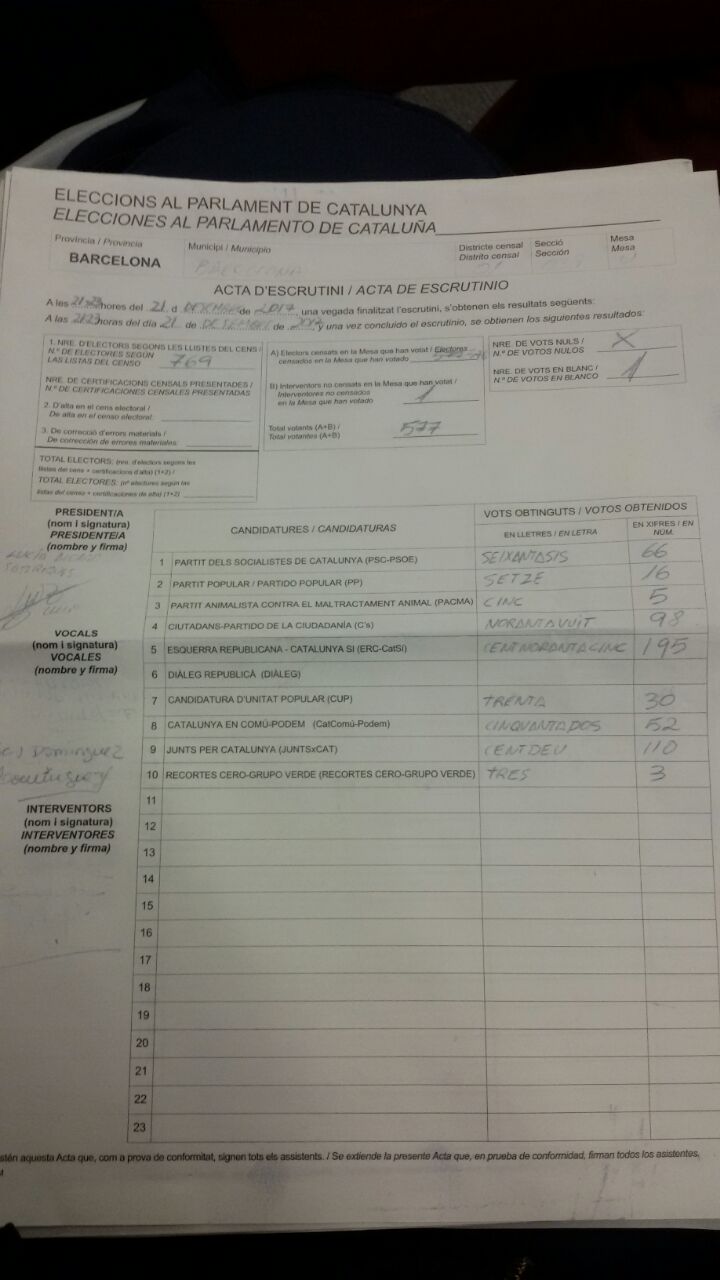 ELECCIONS AL PARLAMENT DE CATALUNYA
ELECCIONES AL PARLAMENTO DE CATALUÑA
Província / Provincia
BARCELONA
Municipi / Municipio
BARCELONA
Districte censal
Distrito censal
Secció
Sección
Mesa
Mesa
ACTA D'ESCRUTINI / ACTA DE ESCRUTINIO
A les 21:23 hores del 21 d DESEMBRE de 2017, una vegada finalitzat l'escrutini, s'obtenen els resultats següents:
A las 21:23 horas del día 21 de DESEMBRE de 2017 y una vez concluido el escrutinio, se obtienen los siguientes resultados:
1. NRE. D'ELECTORS SEGONS LES LLISTES DEL CENS /
N.º DE ELECTORES SEGÚN
LAS LISTAS DEL CENSO 769
NRE. DE CERTIFICACIONS CENSALS PRESENTADES /
N.º DE CERTIFICACIONES CENSALES PRESENTADAS
2. D'alta en el cens electoral /
De alta en el censo electoral:
3. De correcció d'errors materials /
De corrección de errores materiales:
TOTAL ELECTORS: (nre. d'electors segons les
llistes del cens + certificacions d'alta) (1+2) /
TOTAL ELECTORES: (nº electores según las
listas del censo + certificaciones de alta) (1+2)
A) Electors censats en la Mesa que han votat / Electores
censados en la Mesa que han votado 576
B) Interventors no censats en la Mesa que han votat /
Interventores no censados
en la Mesa que han votado 1
Total votants (A+B) /
Total votantes (A+B) 577
NRE. DE VOTS NULS / X
N.º DE VOTOS NULOS
NRE. DE VOTS EN BLANC / 1
N.º DE VOTOS EN BLANCO
PRESIDENT/A
(nom i signatura)
PRESIDENTE/A
(nombre y firma)
VOCALS
(nom i signatura)
VOCALES
(nombre y firma)
Dominguez
INTERVENTORS
(nom i signatura)
INTERVENTORES
(nombre y firma)
CANDIDATURES / CANDIDATURAS
VOTS OBTINGUTS / VOTOS OBTENIDOS
EN LLETRES / EN LETRA
EN XIFRES / EN NÚM.
1 PARTIT DELS SOCIALISTES DE CATALUNYA (PSC-PSOE) SEIXANTASIS 66
2 PARTIT POPULAR / PARTIDO POPULAR (PP) SETZE 16
3 PARTIT ANIMALISTA CONTRA EL MALTRACTAMENT ANIMAL (PACMA) CINC 5
4 CIUTADANS-PARTIDO DE LA CIUDADANÍA (C's) NORANTAVUIT 98
5 ESQUERRA REPUBLICANA - CATALUNYA SI (ERC-CatSí) CENTNORANTACINC 195
6 DIÀLEG REPUBLICÀ (DIÀLEG)
7 CANDIDATURA D'UNITAT POPULAR (CUP) TRENTA 30
8 CATALUNYA EN COMÚ-PODEM (CatComú-Podem) CINQUANTADOS 52
9 JUNTS PER CATALUNYA (JUNTSxCAT) CENTDEU 110
10 RECORTES CERO-GRUPO VERDE (RECORTES CERO-GRUPO VERDE) TRES 3
11
12
13
14
15
16
17
18
19
20
21
22
23
stén aquesta Acta que, com a prova de conformitat, signen tots els assistents. / Se extiende la presente Acta que, en prueba de conformidad, firman todos los asistentes,